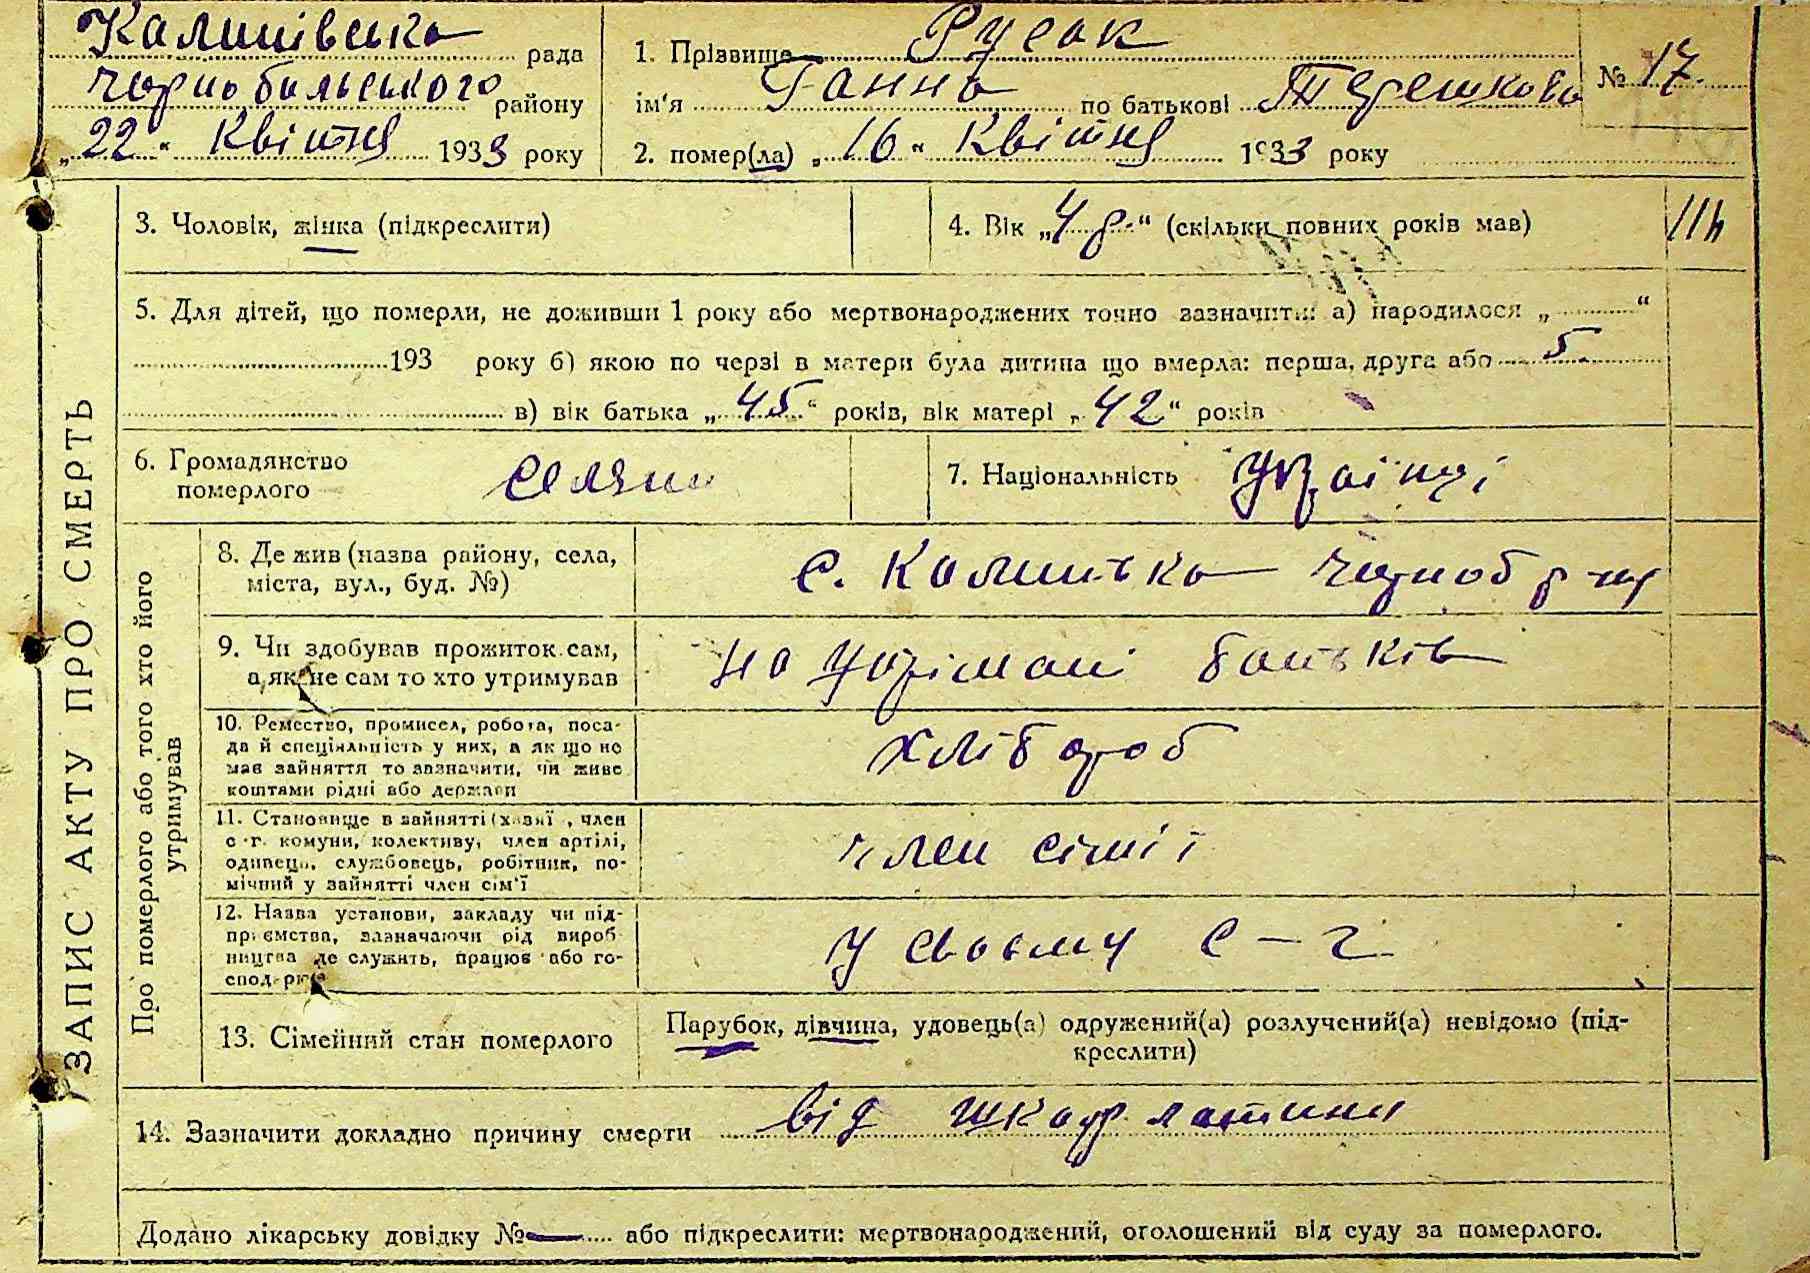 Калинівська рада
Чорнобильського району
„22“ Квітня 1933 року
1. Прізвище Русак
ім'я Ганна по батькові Терешкова
№ 17.
2. помер(ла) „16“ Квітня 1933 року
ЗАПИС АКТУ ПРО СМЕРТЬ
3. Чоловік, жінка (підкреслити)
4. Вік „4 р.“ (скільки повних років мав)
5. Для дітей, що померли, не доживши 1 року або мертвонароджених точно зазначити: а) народилося „ “
193 року б) якою по черзі в матери була дитина що вмерла: перша, друга або 5.
в) вік батька „45“ років, вік матері „42“ років
6. Громадянство
померлого
селяни
7. Національність
Українці
Про померлого або того хто його
утримував
8. Де жив (назва району, села,
міста, вул., буд. №)
9. Чи здобував прожиток сам,
а як не сам то хто утримував
на утрімані батьків
10. Ремество, промисел, робота, поса-
да й спеціяльність у них, а як що не
має зайняття то зазначити, чи живе
коштами рідні або держави
хлібороб
11. Становище в зайнятті (хазяї , член
с-г. комуни, колективу, член артілі,
одинець, службовець, робітник, по-
мічний у зайнятті член сім'ї
член сімії
12. Назва установи, закладу чи під-
приємства, зазначаючи рід вироб
ництва де служить, працює або го-
сподарює
у своєму с-г
13. Сімейний стан померлого
Парубок, дівчина, удовець(а) одружений(а) розлучений(а) невідомо (під-
креслити)
14. Зазначити докладно причину смерти від шкарлатини
Додано лікарську довідку №— або підкреслити: мертвонароджений, оголошений від суду за померлого.